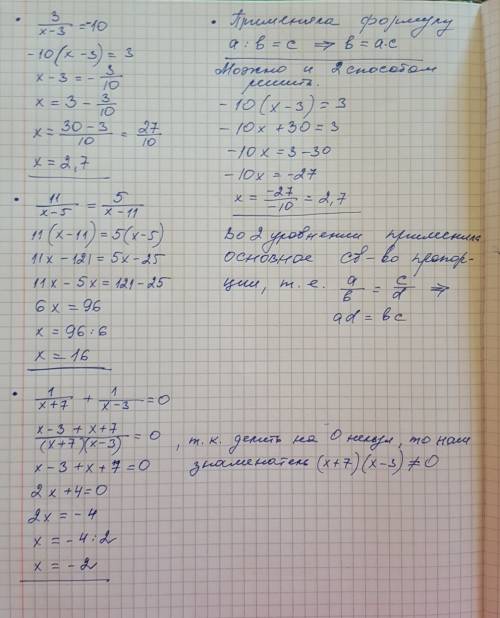 3/(x-3) = -10
-10(x-3) = 3
x-3 = -3/10
x = 3 - 3/10
x = (30-3)/10 = 27/10
x = 2,7
Применяла формулу
a : b = c ⇒ b = a·c
Можно и 2 способом
решить.
-10(x-3) = 3
-10x + 30 = 3
-10x = 3 - 30
-10x = -27
x = -27/-10 = 2,7
11/(x-5) = 5/(x-11)
11(x-11) = 5(x-5)
11x - 121 = 5x - 25
11x - 5x = 121 - 25
6x = 96
x = 96 : 6
x = 16
Во 2 уравнении применила
основное св-во пропор-
ции, т.е. a/b = c/d ⇒
ad = bc
1/(x+7) + 1/(x-3) = 0
(x-3+x+7)/((x+7)(x-3)) = 0, т.к. делить на 0 нельзя, то наш
знаменатель (x+7)(x-3) ≠ 0
x-3+x+7 = 0
2x + 4 = 0
2x = -4
x = -4 : 2
x = -2